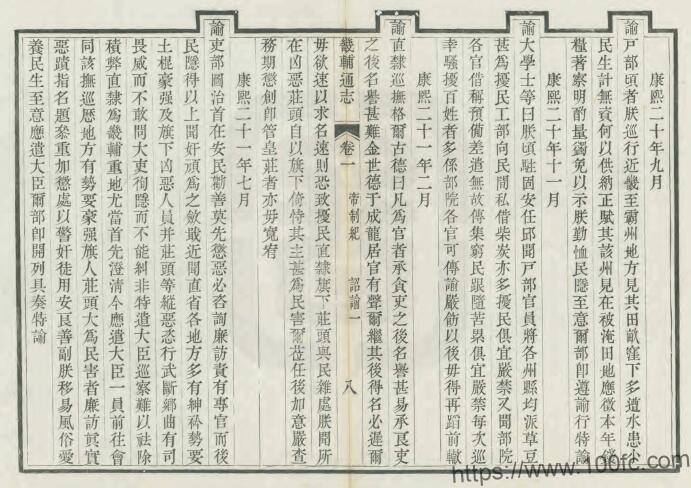 康熙二十年九月
諭戸部頃者朕巡行近畿至霸州地方見其田畝窪下多遭水患小
民生計無資何以供納正賦其該州見在被淹田地應徵本年錢
糧著察明酌量蠲免以示朕勤恤民隱至意爾部卽遵諭行特諭
康熙二十年十一月
諭大學士等曰朕頃駐固安任邱聞戸部官員將各州縣均派草豆
甚爲擾民工部向民間私借柴炭亦多擾民俱宜嚴禁又聞部院
各官借稱預備差遣無故傳集窮民跟隨苦累俱宜嚴禁每次巡
幸騷擾百姓者多係部院各官可傳諭嚴飭以後毋得再蹈前轍
康熙二十一年二月
諭直隸巡撫格爾古德曰凡爲官者承貪吏之後名譽甚易承良吏
之後名譽甚難金世德于成龍居官有聲爾繼其後得名必遲爾
畿輔通志 卷一 帝制紀 詔諭一 八
毋欲速以求名速則恐致擾民直隸旗下莊頭與民雜處朕聞所
在凶惡莊頭自以旗下倚恃其主甚爲民害爾莅任後如意嚴查
務期懲創卽管皇莊者亦毋寬宥
康熙二十一年七月
諭吏部圖治首在安民勸善莫先懲惡必咨詢廉訪責有專官而後
民隱得以上聞奸頑爲之斂戢近聞直省各地方多有紳衿勢要
土棍豪强及旗下凶惡人員并莊頭等縱惡恣行武斷鄉曲有司
畏威而不敢問大吏徇隱而不能糾非特遣大臣巡察難以祛除
積弊直隸爲畿輔重地尤當首先澄清今應遣大臣一員前往會
同該撫巡歷地方有勢要豪强旗人莊頭大爲民害者廉訪眞實
惡蹟指名題參重加懲處以警奸徒用安良善副朕移易風俗愛
養民生至意應遣大臣爾部卽開列具奏特諭
https://www.100fc.com